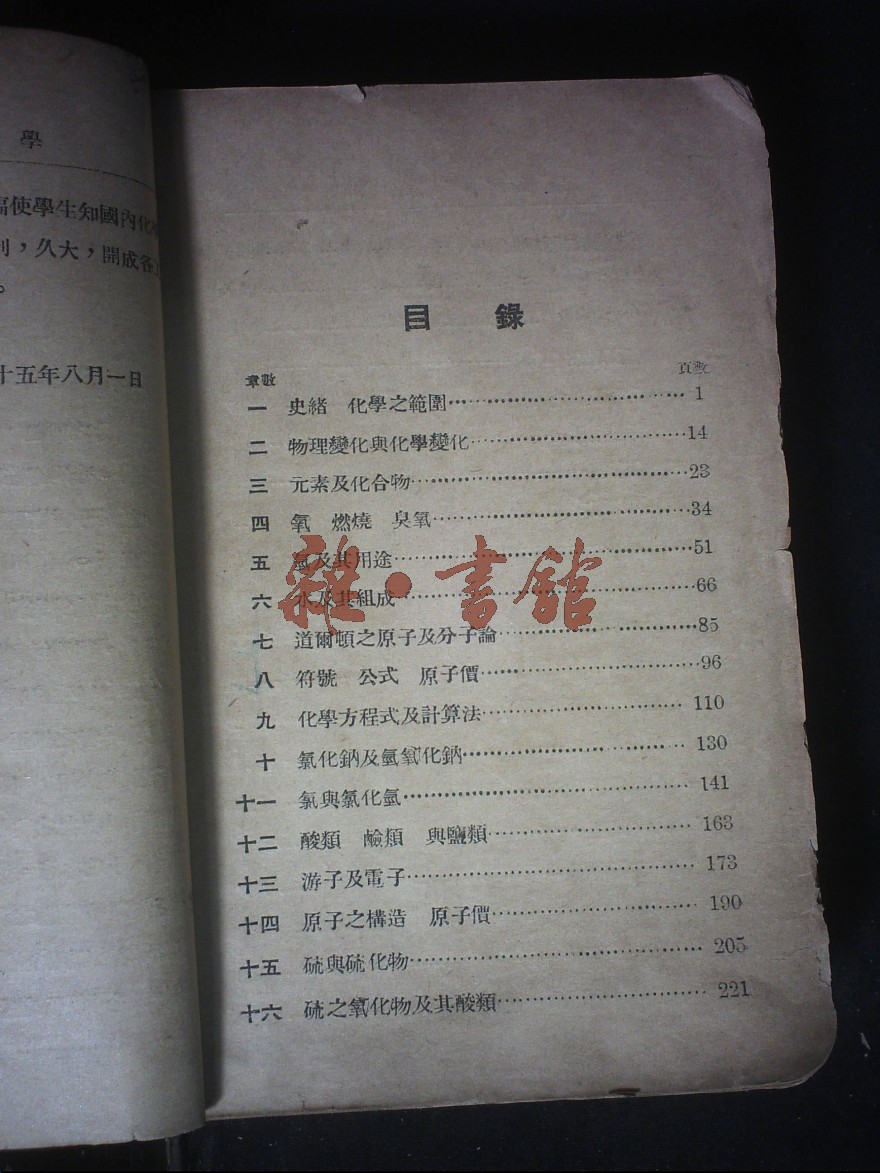 學
使學生知國內化
，久大，開成各
。
十五年八月一日
目 錄
章數 頁數
一 史緒 化學之範圍 1
二 物理變化與化學變化 14
三 元素及化合物 23
四 氧 燃燒 臭氧 34
五 氫及其用途 51
六 水及其組成 66
七 道爾頓之原子及分子論 85
八 符號 公式 原子價 96
九 化學方程式及計算法 110
十 氯化鈉及氫氧化鈉 130
十一 氯與氯化氫 141
十二 酸類 鹼類 與鹽類 163
十三 游子及電子 173
十四 原子之構造 原子價 190
十五 硫與硫化物 205
十六 硫之氧化物及其酸類 221
雜·書館